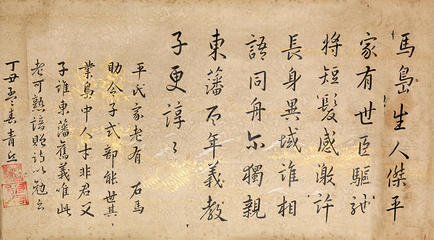 馬島生人傑平
家有世臣驅馳
將短髮感激許
長身異域誰相
語同舟尒獨親
東藩百年義教
子更諄〻
平氏家老有 石馬
助令子式部能世其
業島中人才非君父
子誰東藩舊義唯此
老可熟諳贈詩以勉云
丁丑孟春青丘